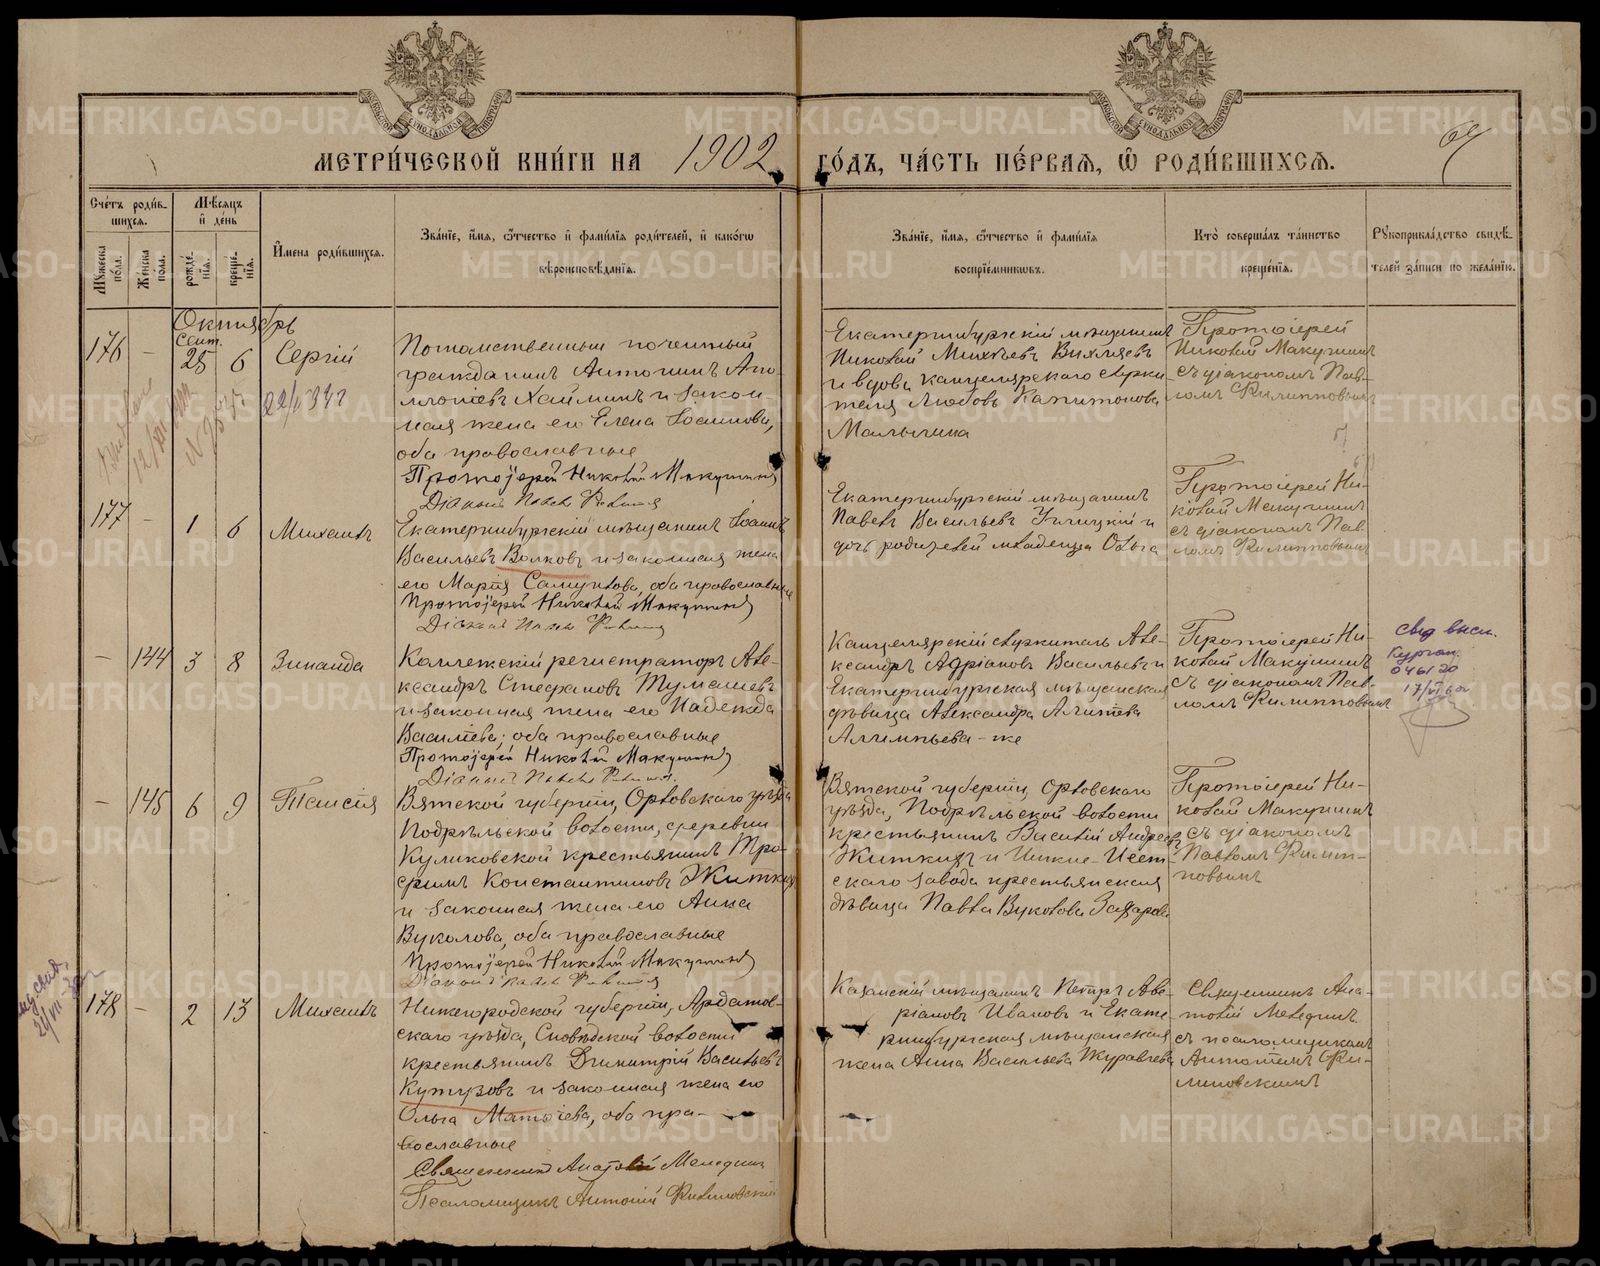 МЕТРИ́ЧЕСКОЙ КНИ́ГИ НА 1902 ГО́ДЪ, ЧА́СТЬ ПЕ́РВАЯ, Ѽ РОДИ́ВШИХСѦ.
Сче́тъ роди́в-
шихся.
Мꙋ́жеска по́ла.
Же́нска по́ла.
Мѣ́сяцъ и҆ де́нь
рожде́-
нїѧ.
креще́-
нїѧ.
И҆́мена роди́вшихсѧ.
Зва́нїе, и҆́мѧ, ѻ҆́тчество и҆ фами́лїѧ роди́телей, и҆ како́гѡ
вѣроисповѣ́данїѧ.
Зва́нїе, и҆́мѧ, ѻ҆́тчество и҆ фами́лїѧ
воспрїе́мникѡвъ.
Кто̀ соверша́лъ та́инство
креще́нїѧ.
Рꙋкоприкла́дство свидѣ́-
телей за́писи по жела́нїю.
Октябрь
176 – Сент. 25 6 Сергій
Потомственный почетный
гражданинъ Антонинъ Апо-
ллоновъ Хайминъ и закон-
ная жена его Елена Іоаннова,
оба православные
Протоіерей Николай Макушинъ
Діаконъ Павелъ
Екатеринбургскій мѣщанинъ
Николай Вихляевъ
и вдова канцелярскаго служи-
теля Любовь Капитонова
Малыгина
Протоіерей
Николай Макушинъ
съ діакономъ Пав-
ломъ Филипповымъ
177 – 1 6 Михаилъ
Екатеринбургскій мѣщанинъ Іоаннъ
Васильевъ Волковъ и законная жена
его Марія Самуилова, оба православные
Протоіерей Николай Макушинъ
Діаконъ Павелъ
Екатеринбургскій мѣщанинъ
Павелъ Васильевъ и
дочь родителей младенца Ольга
Протоіерей Ни-
колай Макушинъ
съ діакономъ Пав-
ломъ Филипповымъ
– 144 3 8 Зинаида
Коллежскій регистраторъ Але-
ксандръ Стефановъ Тумашевъ
и законная жена его Надежда
Васильева, оба православные
Протоіерей Николай Макушинъ
Діаконъ Павелъ
Канцелярскій служитель Але-
ксандръ Адріановъ Васильевъ и
Екатеринбургская мѣщанская
дѣвица Александра
Алимпьева-же
Протоіерей Ни-
колай Макушинъ
съ діакономъ Пав-
ломъ Филипповымъ
– 145 6 9 Таисія
Вятской губерніи, Орловскаго уѣзда
Подрѣльской волости, деревни
Куликовской крестьянинъ Тро-
фимъ Константиновъ Житкихъ
и законная жена его Анна
Вуколова, оба православные
Протоіерей Николай Макушинъ
Діаконъ Павелъ
Вятской губерніи, Орловскаго
уѣзда, Подрѣльской волости
крестьянинъ Василій Андреевъ
Житкихъ и Нижне-Исет-
скаго завода крестьянская
дѣвица Павла Вуколова Захарова
Протоіерей Ни-
колай Макушинъ
съ діакономъ
Павломъ Филип-
повымъ
178 – 2 13 Михаилъ
Нижегородской губерніи, Ардатов-
скаго уѣзда, волости
крестьянинъ Димитрій Васильевъ
Кутузовъ и законная жена его
Ольга оба пра-
вославные
Священникъ Анатолій Мелединъ
Псаломщикъ Антоній Филиповскій
Казанскій мѣщанинъ Петръ Аве-
ріановъ Ивановъ и Екате-
ринбургская мѣщанская
жена Анна Васильева Журавлева
Священникъ Ана-
толій Мелединъ
съ псаломщикомъ
Антоніемъ Фи-
липовскимъ
METRIKI.GASO-URAL.RU